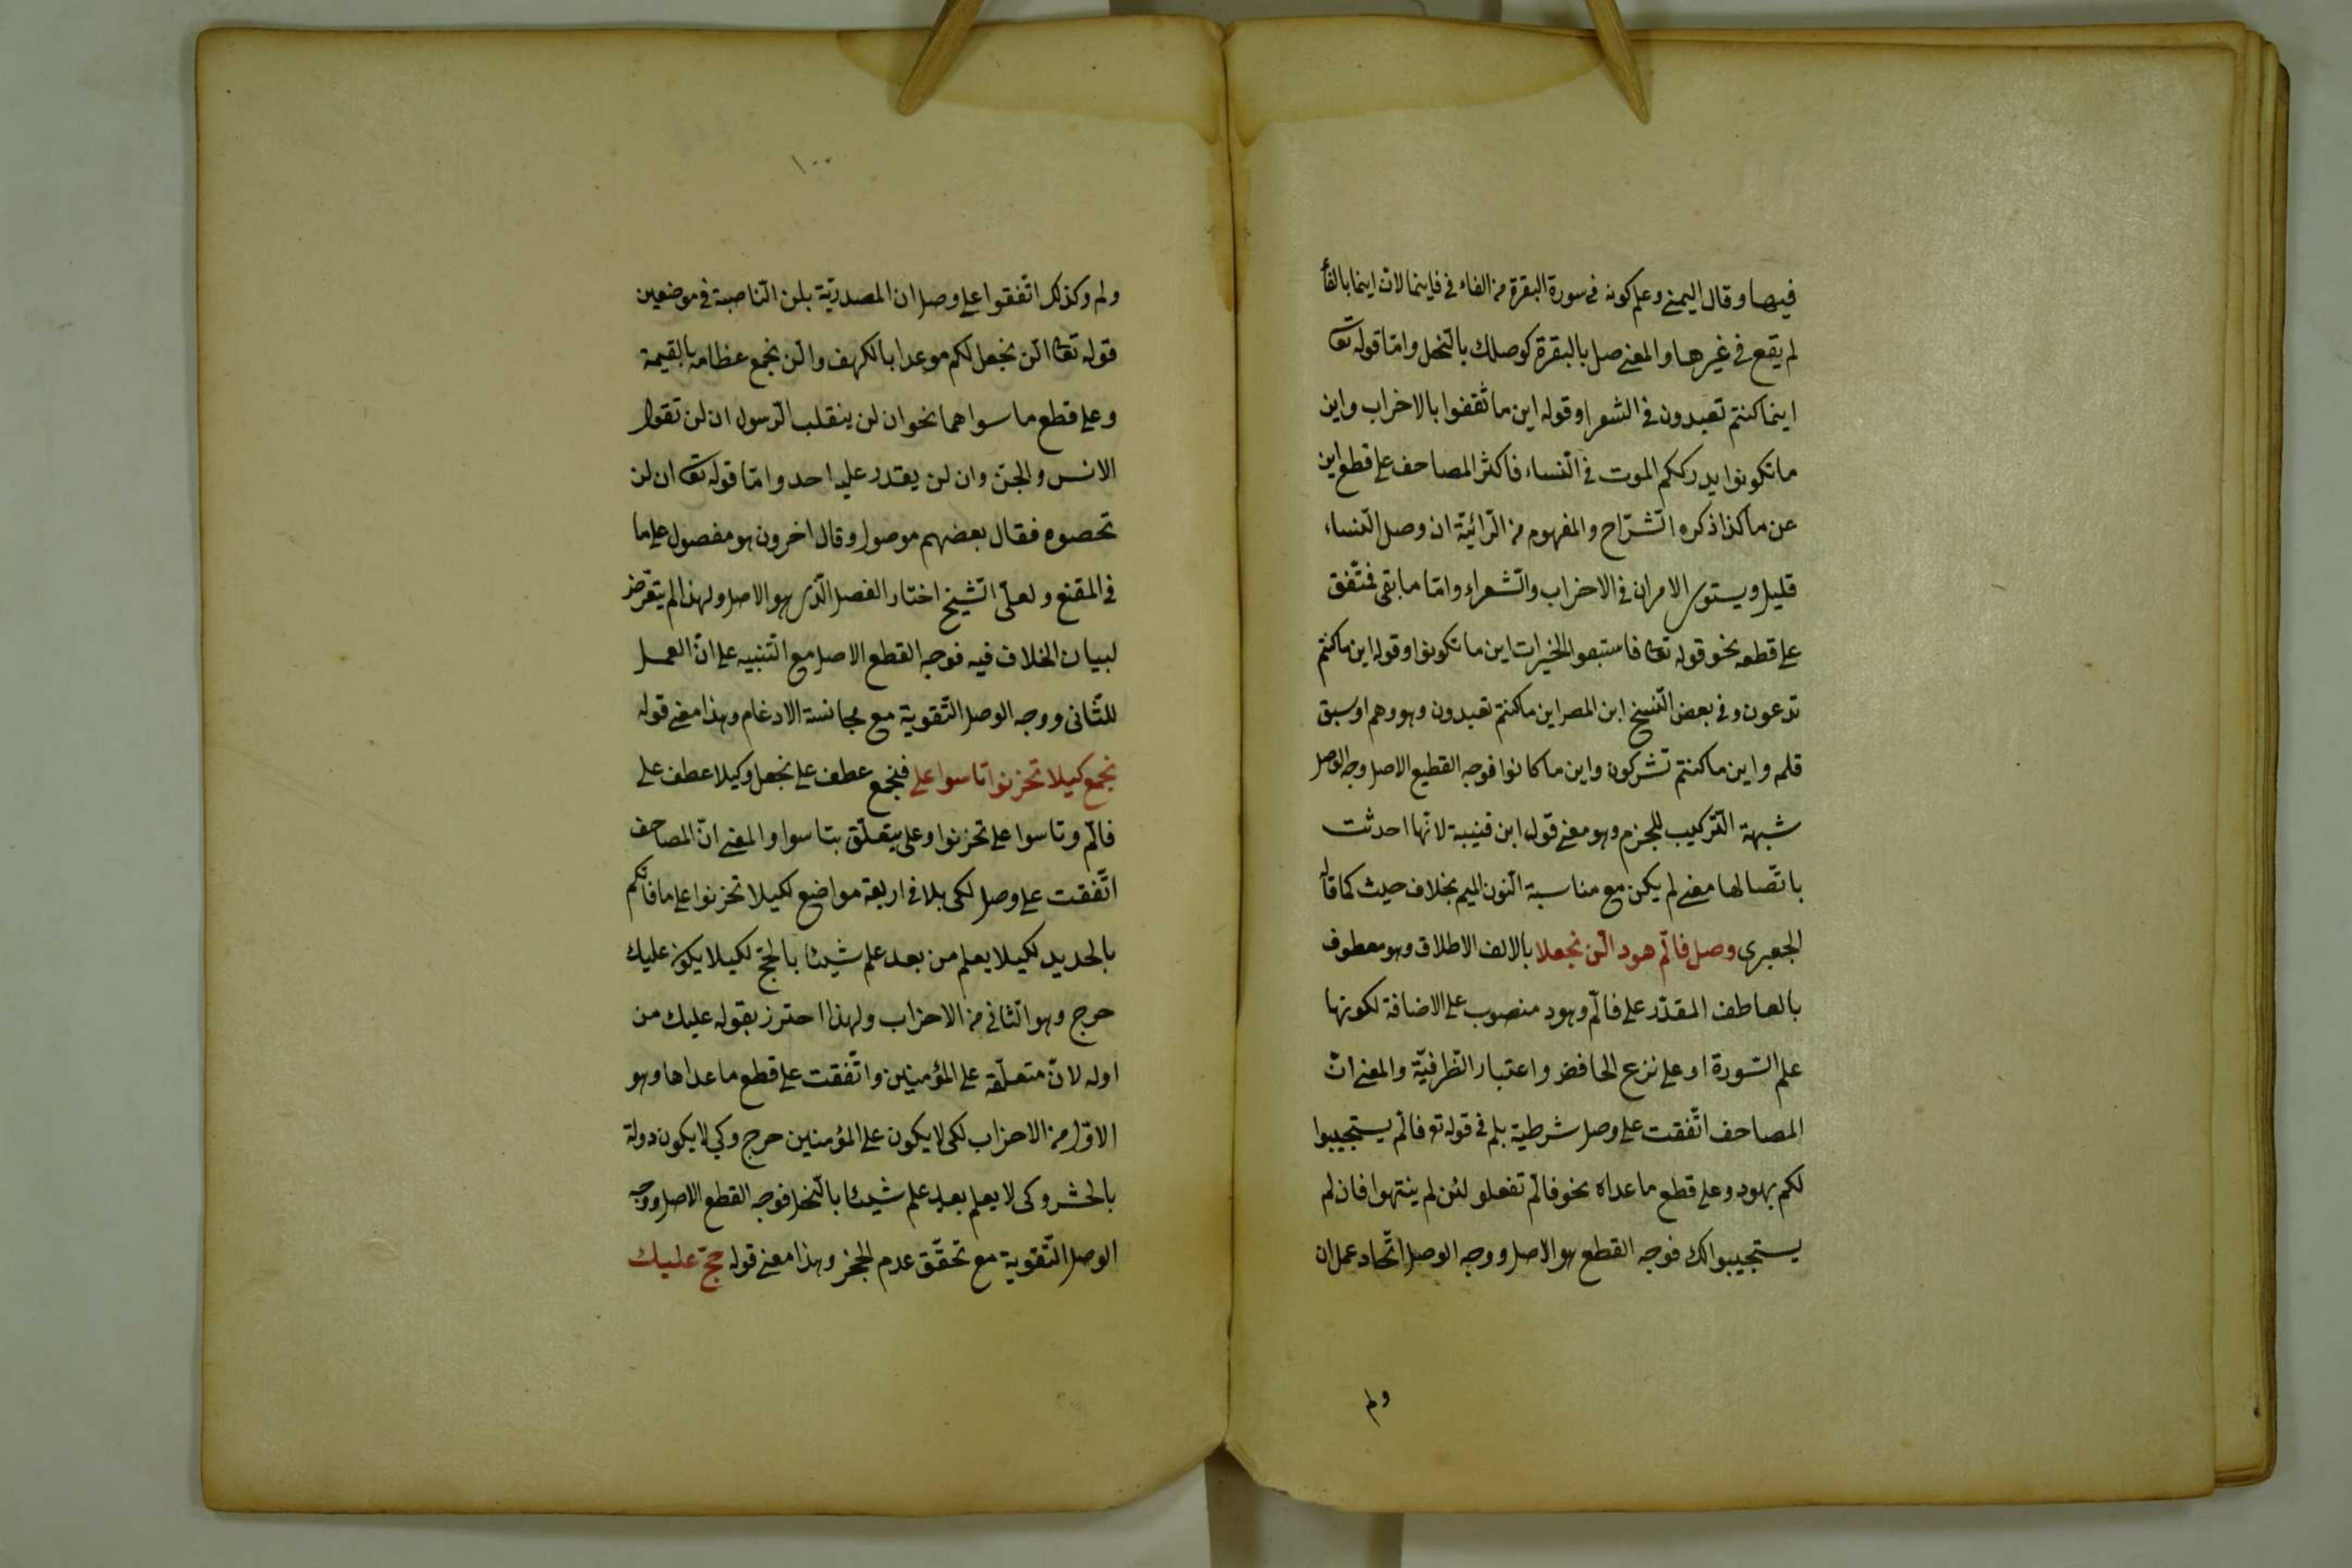 فيها وقال اليمنى وعلم كونه فى سورة البقرة من الفاء فى فاينما لان اينما بالفاء
لم يقع فى غيرها والمعنى صل بالبقرة كوصلك بالنحل وامّا قوله تعا
اينما كنتم تعبدون فى الشعرا وقوله اين ما ثقفوا بالاحزاب واين
ما تكونوا يدرككم الموت فى النّساء فاكثر المصاحف على قطع اين
عن ما كذا ذكره الشّرّاح والمفهوم من الرّائيّة ان وصل النّساء
قليل ويستوى الامران فى الاحزاب والشّعراء وامّا ما بقى فمتّفق
على قطعه نحو قوله تعا فاستبقوا الخيرات اين ما تكونوا وقوله اين ما كنتم
تدعون وفى بعض النّسخ ابن المصر اين ما كنتم تعبدون وهو وهم او سبق
قلم واين ما كنتم تشركون واين ما كانوا فوجه القطيع الاصل وجه الوصل
شبهة التّركيب للجزم وهو معنى قول ابن قتيبة لانّها احدثت
باتّصالها معنى لم يكن مع مناسبة النّون الميم بخلاف حيث كما قاله
الجعبرى وصل فالّم هود الّن نجعلا بالالف الاطلاق وهو معطوف
بالعاطف المقدّر على فالّم وهود منصوب على الاضافة لكونها
علم السّورة او على نزع الخافض واعتبار الظّرفيّة والمعنى انّ
المصاحف اتّفقت على وصل شرطية بلم فى قوله تع فالّم يستجيبوا
لكم بهود وعلى قطع ما عداه نحو فالّم تفعلو لئن لم ينتهوا فان لم
يستجيبوا لك فوجه القطع هو الاصل ووجه الوصل اتّحاد عمل ان
ولم
١٠٠
ولم وكذلك اتّفقوا على وصل ان المصدريّة بلن النّاصبة فى موضعين
قوله تعا الّن نجعل لكم موعدا بالكهف والّن نجمع عظامه بالقيمة
وعلى قطع ما سواهما نحو ان لن ينقلب الرّسول ان لن تقول
الانس والجنّ وان لن يقدر عليه احد وامّا قوله تعا ان لن
تحصوه فقال بعضهم موصول وقال اخرون هو مفصول على ما
فى المقنع ولعلّ الشّيخ اختار الفصل الّذى هو الاصل ولهذا لم يتعّرض
لبيان الخلاف فيه فوجه القطع الاصل مع التّنبيه على انّ العمل
للثّانى ووجه الوصل التّقوية مع مجانسة الادغام وهذا معنى قوله
نجمع كيلا تحزنوا تاسوا على فنجمع عطف على نجعل وكيلا عطف على
فالّم وتاسوا على تحزنوا وعلى يتعلّق بتاسوا والمعنى انّ المصاحف
اتّفقت على وصل لكى بلا فى اربعة مواضع لكيلا تحزنوا على ما فاتكم
بالحديد لكيلا يعلم من بعد علم شيئا بالحجّ لكيلا يكون عليك
حرج وهو الثّانى من الاحزاب ولهذا احترز بقوله عليك من
اوله لانّ متعلّقه على المؤمنين واتّفقت على قطع ما عداها وهو
الاوّل من الاحزاب لكى لا يكون على المؤمنين حرج وكى لا يكون دولة
بالحشر وكى لا يعلم بعد علم شيئا بالنّحل فوجه القطع الاصل ووجه
الوصل التّقوية مع تحقّق عدم الحجز وهذا معنى قوله حجّ عليك